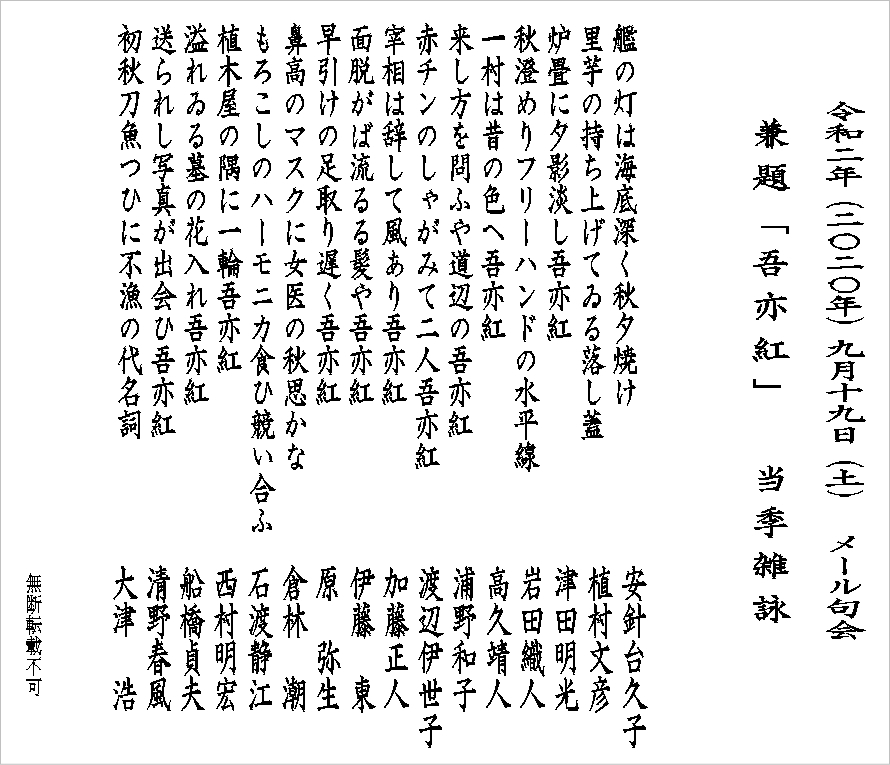 令和二年（二〇二〇年）九月十九日（土）　メール句会
兼題「吾亦紅」　当季雑詠
艦の灯は海底深く秋夕焼け　安針台久子
里芋の持ち上げてゐる落し蓋　植村文彦
炉畳に夕影淡し吾亦紅　津田明光
秋澄めりフリーハンドの水平線　岩田織人
一村は昔の色へ吾亦紅　高久靖人
来し方を問ふや道辺の吾亦紅　浦野和子
赤チンのしゃがみて二人吾亦紅　渡辺伊世子
宰相は辞して風あり吾亦紅　加藤正人
面脱がば流るる髪や吾亦紅　伊藤　東
早引けの足取り遅く吾亦紅　原　弥生
鼻高のマスクに女医の秋思かな　倉林　潮
もろこしのハーモニカ食ひ競い合ふ　石渡静江
植木屋の隅に一輪吾亦紅　西村明宏
溢れゐる墓の花入れ吾亦紅　船橋貞夫
送られし写真が出会ひ吾亦紅　清野春風
初秋刀魚つひに不漁の代名詞　大津　浩
無断転載不可